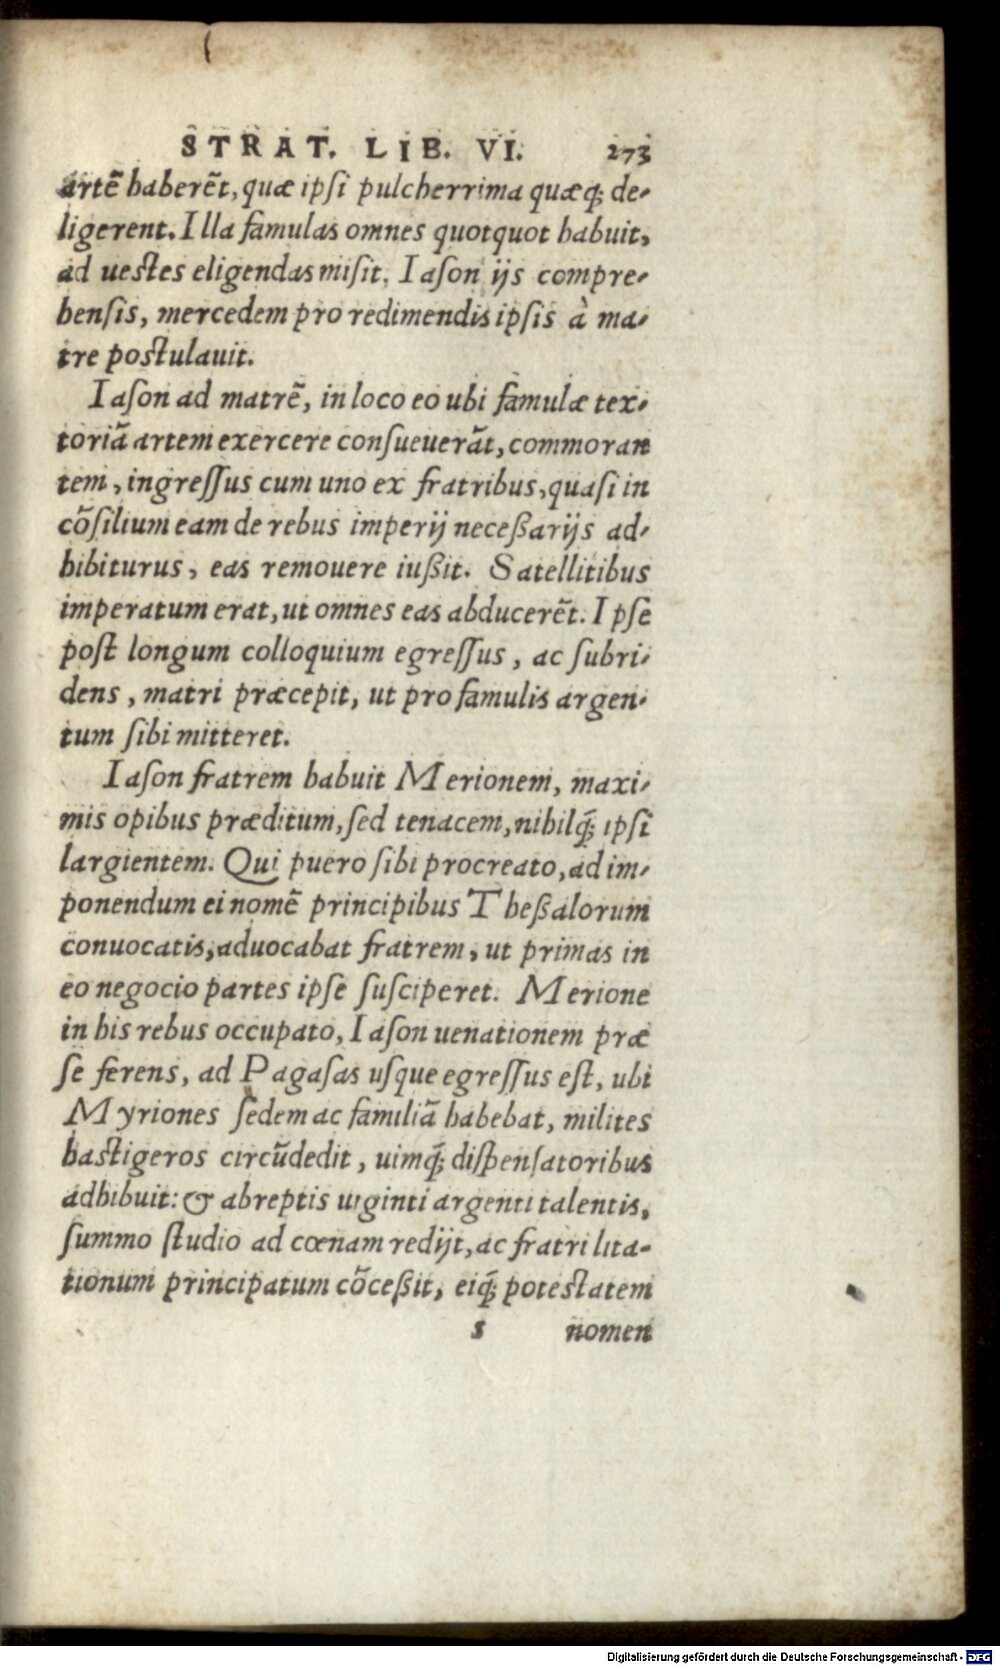 STRAT. LIB. VI. 273
artē haberēt, quæ ipsi pulcherrima quæq; de-
ligerent. Illa famulas omnes quotquot habuit,
ad uestes eligendas misit. Iason ijs compre-
hensis, mercedem pro redimendis ipsis à ma-
tre postulauit.
Iason ad matrē, in loco eo ubi famulæ tex-
toriā artem exercere consueuerāt, commoran
tem, ingressus cum uno ex fratribus, quasi in
cōsilium eam de rebus imperij neceßarijs ad-
hibiturus, eas remouere iußit. Satellitibus
imperatum erat, ut omnes eas abducerēt. Ipse
post longum colloquium egressus, ac subri-
dens, matri præcepit, ut pro famulis argen-
tum sibi mitteret.
Iason fratrem habuit Merionem, maxi-
mis opibus præditum, sed tenacem, nihilq́; ipsi
largientem. Qui puero sibi procreato, ad im-
ponendum ei nomē principibus Theßalorum
conuocatis, aduocabat fratrem, ut primas in
eo negocio partes ipse susciperet. Merione
in his rebus occupato, Iason uenationem præ
se ferens, ad Pagasas usque egressus est, ubi
Myriones sedem ac familiā habebat, milites
hastigeros circūdedit, uimq́; dispensatoribus
adhibuit: & abreptis uiginti argenti talentis,
summo studio ad cœnam redijt, ac fratri lita-
tionum principatum cōceßit, eiq́; potestatem
s nomen
Digitalisierung gefördert durch die Deutsche Forschungsgemeinschaft - DFG